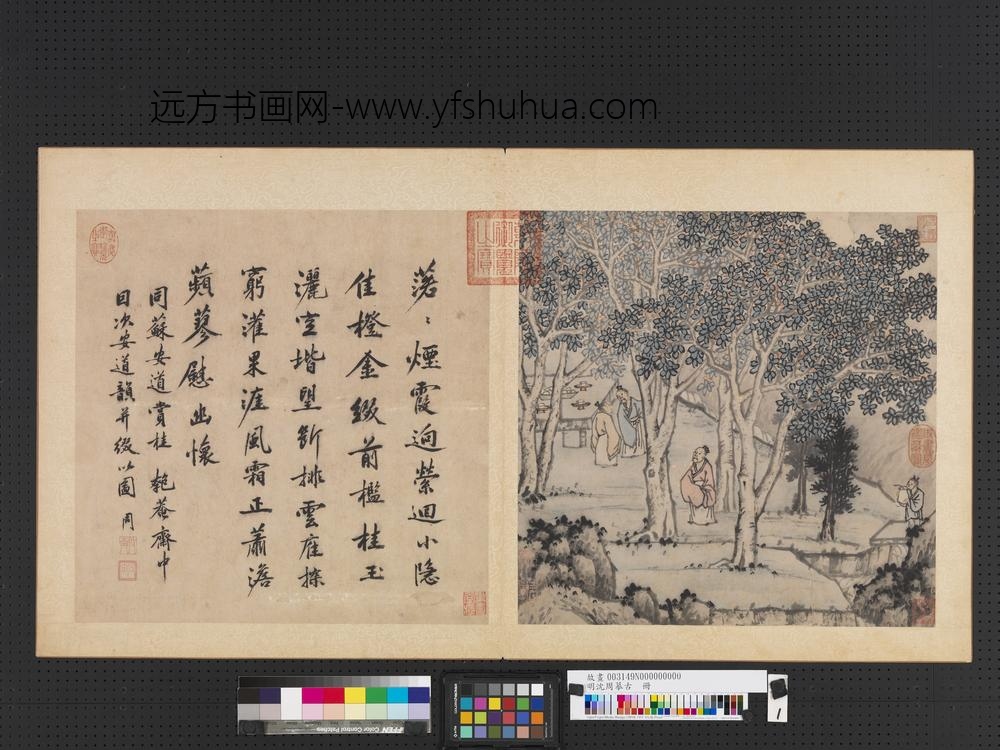 远方书画网-www.yfshuhua.com
落〻煙霞迥縈迴小隱
佳橙金綴前檻桂玉
灑空堦望斷排雲産採
窮灌果涯風霜正蕭澹
蘋蓼慰幽懷
同蘇安道賞桂匏菴齋中
目次安道韻并綴以圖周
故畫003149N000000000
明沈周摹古 冊
1